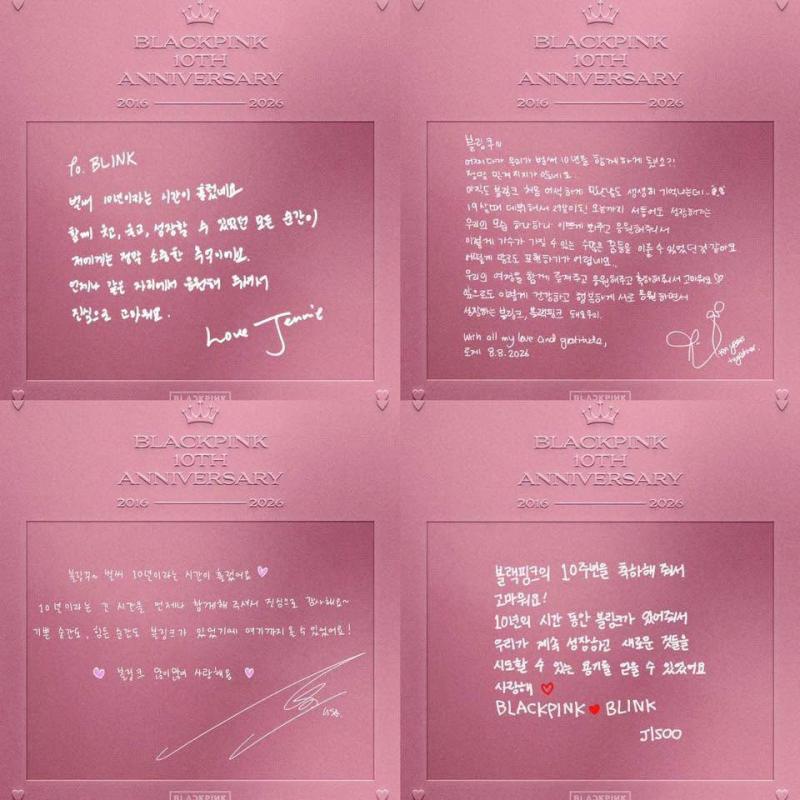 BLACKPINK
10TH
ANNIVERSARY
2016 2026
To. BLINK
벌써 10년이라는 시간이 흘렀네요
함께 웃고, 울고, 성장할 수 있었던 모든 순간이
저에게는 정말 소중한 추억이에요.
언제나 같은 자리에서 응원해 주셔서
진심으로 고마워요.
Love Jennie
BLACKPINK
BLACKPINK
10TH
ANNIVERSARY
2016 2026
블링쿠!!
어쩌다가 우리가 벌써 10년을 함께하게 됐죠?!
정말 믿겨지지가 않네요..
아직도 블링크 처음 어색하게 만난날도 생생히 기억나는데..
19살때 데뷔해서 29살이된 오늘까지 서툴어도 성장해가는
우리의 모습 하나하나 이쁘게 봐주고 응원해주셔서
이렇게 가수가 가질 수 있는 수많은 꿈들을 이룰 수 있었던것같아요
어떻게 말로도 표현하기가 어렵네요..
우리의 여정을 함께 해주고 응원해주고 축하해줘서 고마워요
앞으로도 이렇게 건강하고 행복하게 서로 응원하면서
성장하는 블링크, 블랙핑크 돼요우리.
With all my love and gratitude,
로제 8.8.2026
ten years
together.
BLACKPINK
BLACKPINK
10TH
ANNIVERSARY
2016 2026
블링꾸~ 벌써 10년이라는 시간이 흘렀어요
10년이라는 긴 시간을 언제나 함께해 주셔서 진심으로 감사해요~
기쁜 순간도, 힘든 순간도 블링크가 있었기에 여기까지 올 수 있었어요!
블링크 많이많이 사랑해용
LISA.
BLACKPINK
BLACKPINK
10TH
ANNIVERSARY
2016 2026
블랙핑크의 10주년을 축하해 줘서
고마워요!
10년의 시간 동안 블링크가 있어줘서
우리가 계속 성장하고 새로운 것들을
시도할 수 있는 용기를 얻을 수 있었어요
사랑해
BLACKPINK BLINK
JISOO
BLACKPINK